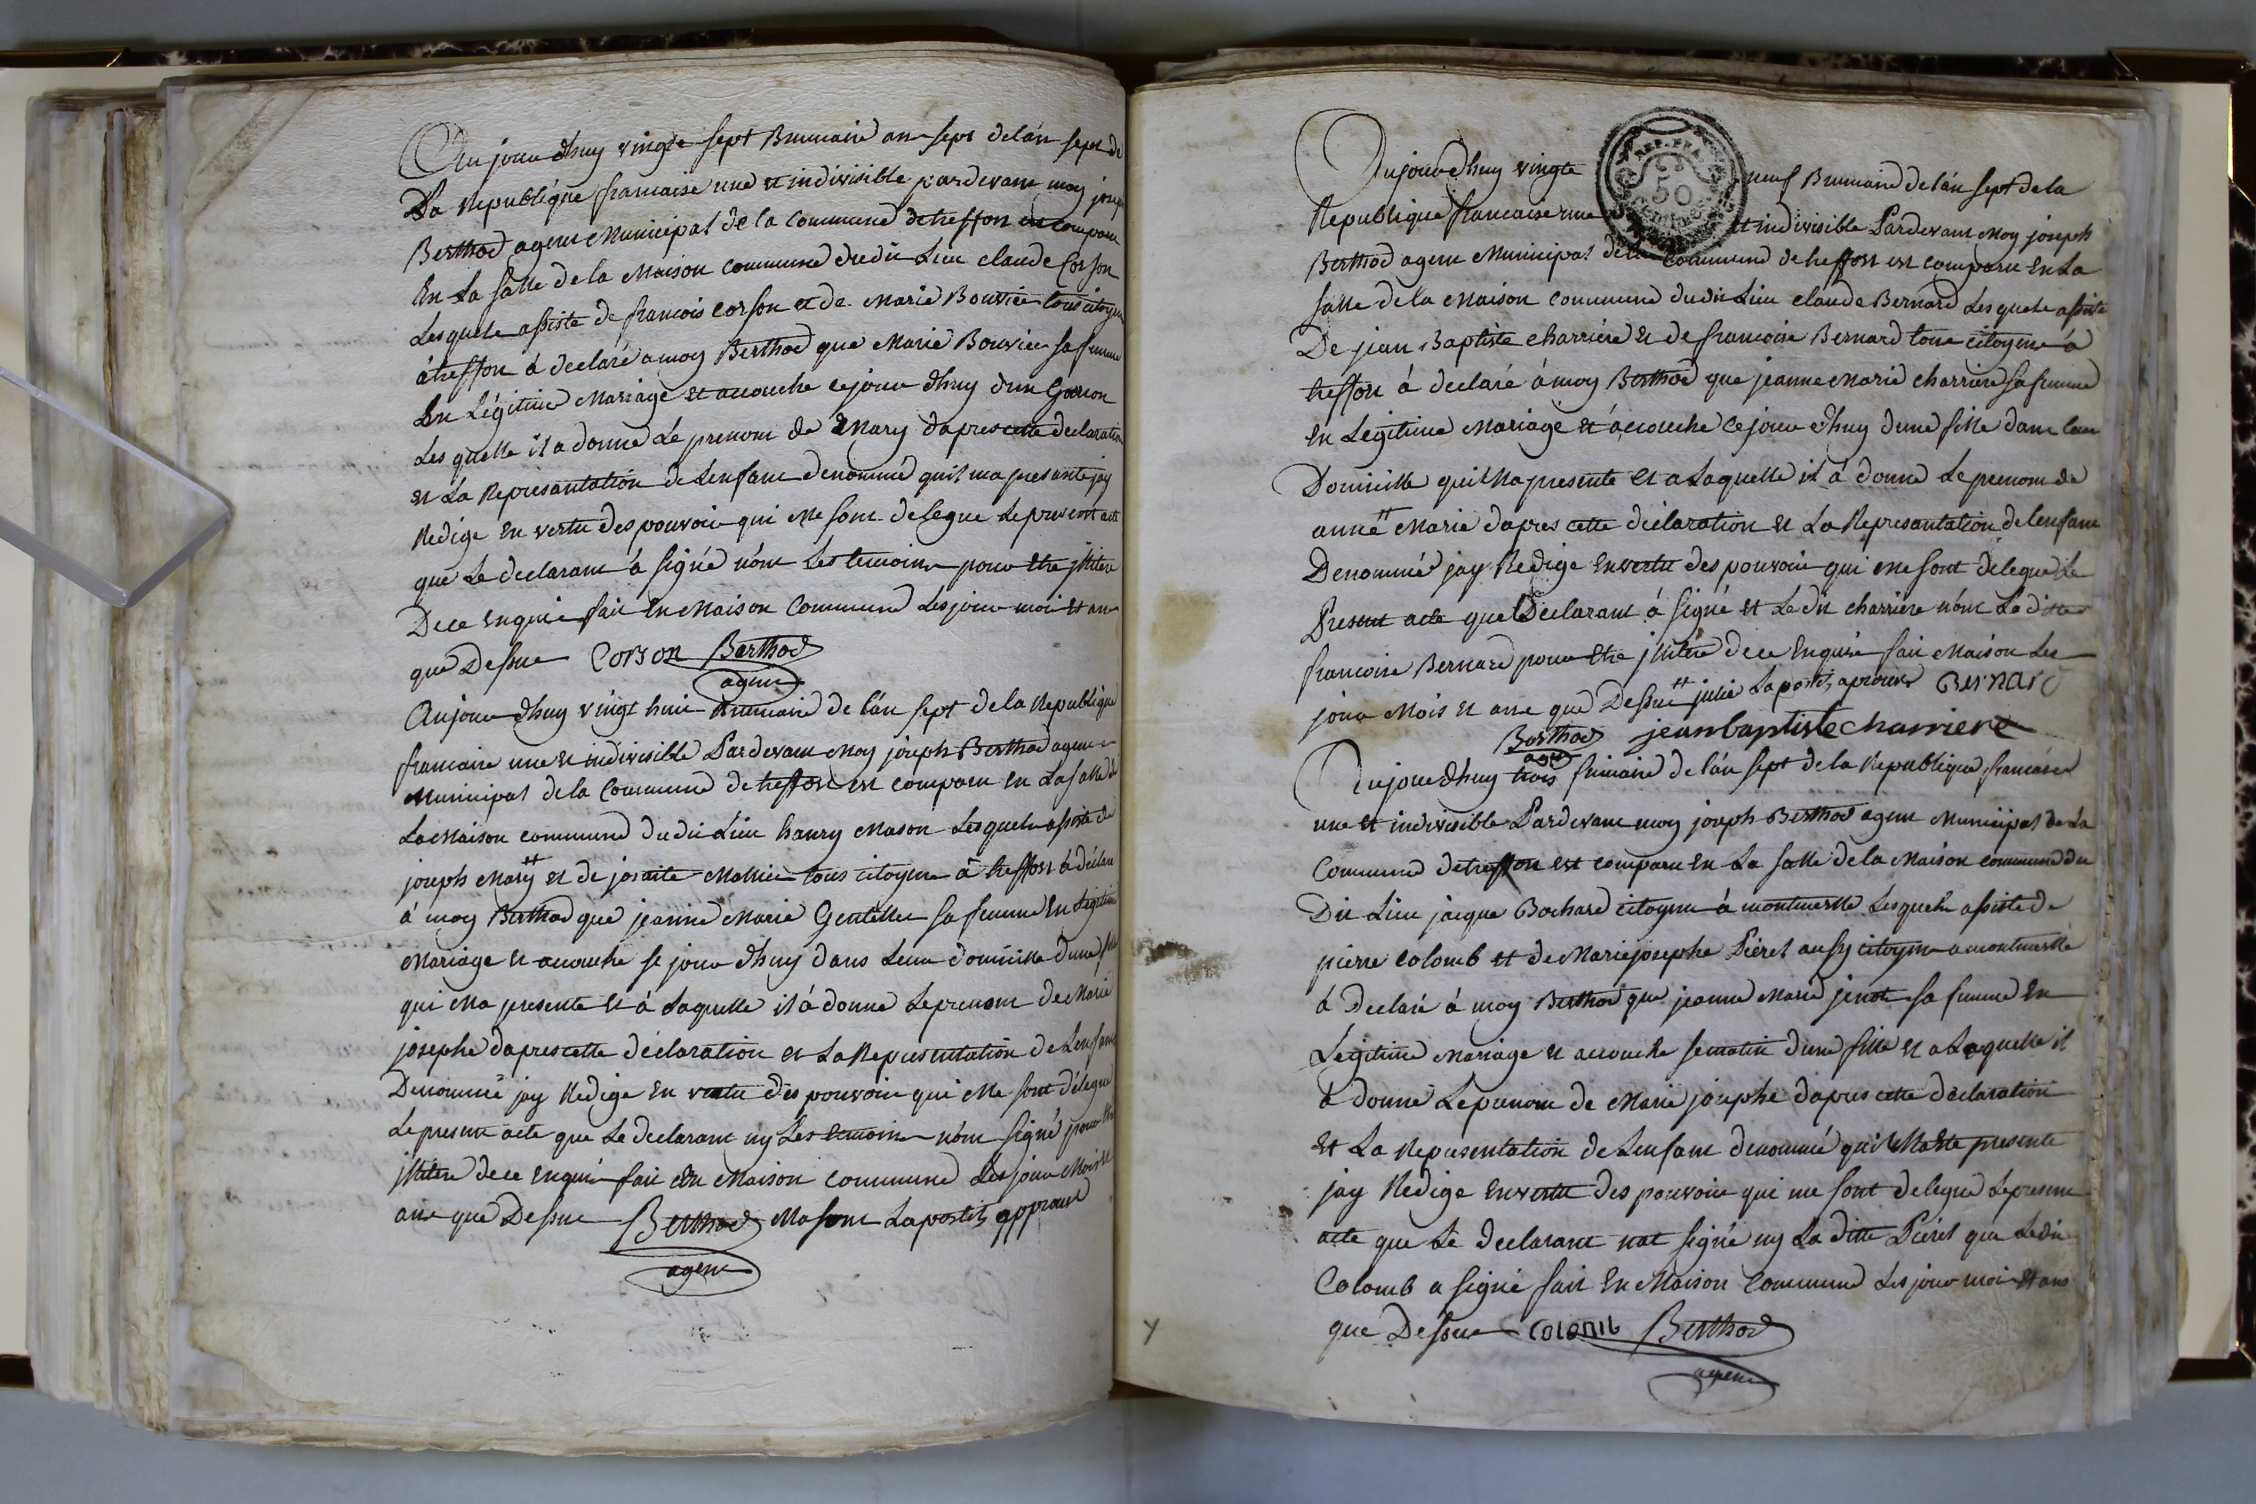 Aujourdhuy vingte sept Brumaire an sept de lán sept de
La Republique francaise une et indivisible pardevant moy joseph
Berthod agent Municipal de la Commune detreffort est comparu
En La salle de la Maison commune dudit Lieu claude Corson
Lesquele assiste de francois corson et de Marie Bouvier tous citoyens
átreffort á declaré a moy Berthod que Marie Bouvier sa femme
En Légitime Mariage et accouche cejour dhuy dun Garcon
Lesquelle il a donne Le prenom de Mary dapres cette declaration
et La Represantation de Lenfant denommé quil ma presanté jay
Redige En vertu des pouvoir qui me sont delegue Le present acte
que Le declarant á signé nónt Les temoins pour être
Dece Enquis fait En Maison Commune Les jour mois et an
que Dessus Corson Berthod
agent
Aujourdhuy vingt huit Brumaire de lán sept de la Republique
francaise une et indivisible Pardevant Moy joseph Berthod agent
Municipal de la Commune de treffort est comparu En La salle de
La Maison commune dudit Lieu hanry Mason Lesquele assiste de
joseph Mary et de Mathieu tous citoyens á treffort á déclaré
á moy Berthod que jeanne Marie Gentellet sa femme En Légitime
Mariage et accouche se jour dhuy dans Leur domicille dune fille
qui Ma presente et á Laquelle il á donne Le prenom de Marie
josephe dapres cette déclaration et La Representation de Lenfant
Denommé jay Redige En vertu des pouvoir qui Me sont délegué
Le present acte que Le declarant ny Les temoins nónt signé pour être
dece Enquis fait En Maison commune Les jour Mois et
ans que Dessus Berthod Masont Lapostil approuve
agent
Aujourdhuy vingte neuf Brumaire de lán sept de la
REP. FRA.
50
Republique francaise une et indivisible Pardevant Moy joseph
Berthod agent Municipal de la Commune de treffort est comparu En La
salle de la Maison commune dudit Lieu claude Bernard Lesquele assiste
De jean Baptiste charriere et de francoise Bernard tous citoyens á
treffort á declaré á moy Berthod que jeanne Marie charriere sa femme
En Légitime Mariage et áccouche cejour dhuy dune fille dans Leur
Domicille quil Ma presente et a Laquelle il á donne Le prenom de
anne Marie dapres cette déclaration et La Represantation de lenfant
Denommé jay Redige En vertu des pouvoir qui me sont délegue Le
Present acte que Declarant á signé et Ledit charriere nónt Laditte
francoise Bernard pour être dece Enquis fait Maison Les
jour Mois et ans que Dessus julie Lapostil aprouve Bernard
Berthod jeanbaptiste charriere
agent
Aujourdhuy trois frimaire de lán sept de la Republique francaise
une et indivisible Pardevant moy joseph Berthod agent Municipal de La
Commune de treffort est comparu En La salle de la Maison commune du
Dit Lieu jacque Bochard citoyen á montmerle Lesquele assiste de
pierre colomb et de Marie josephe Péret aussy citoyen a montmerle
á Declaré á moy Berthod que jeanne Marie jenot sa femme En
Légitime Mariage et accouche se matin dune fille et a Laquelle il
á donné Le prenom de Marie josephe dapres cette déclaration
et La Representation de Lenfant denommé quil Ma presente
jay Redige En vertu des pouvoir qui me sont delegue Le present
acte que Le declarant nat signé ny La ditte Péret que Ledit
Colomb a signé fait En Maison Commune Les jour mois et ans
que Dessus Colomb Berthod
agent